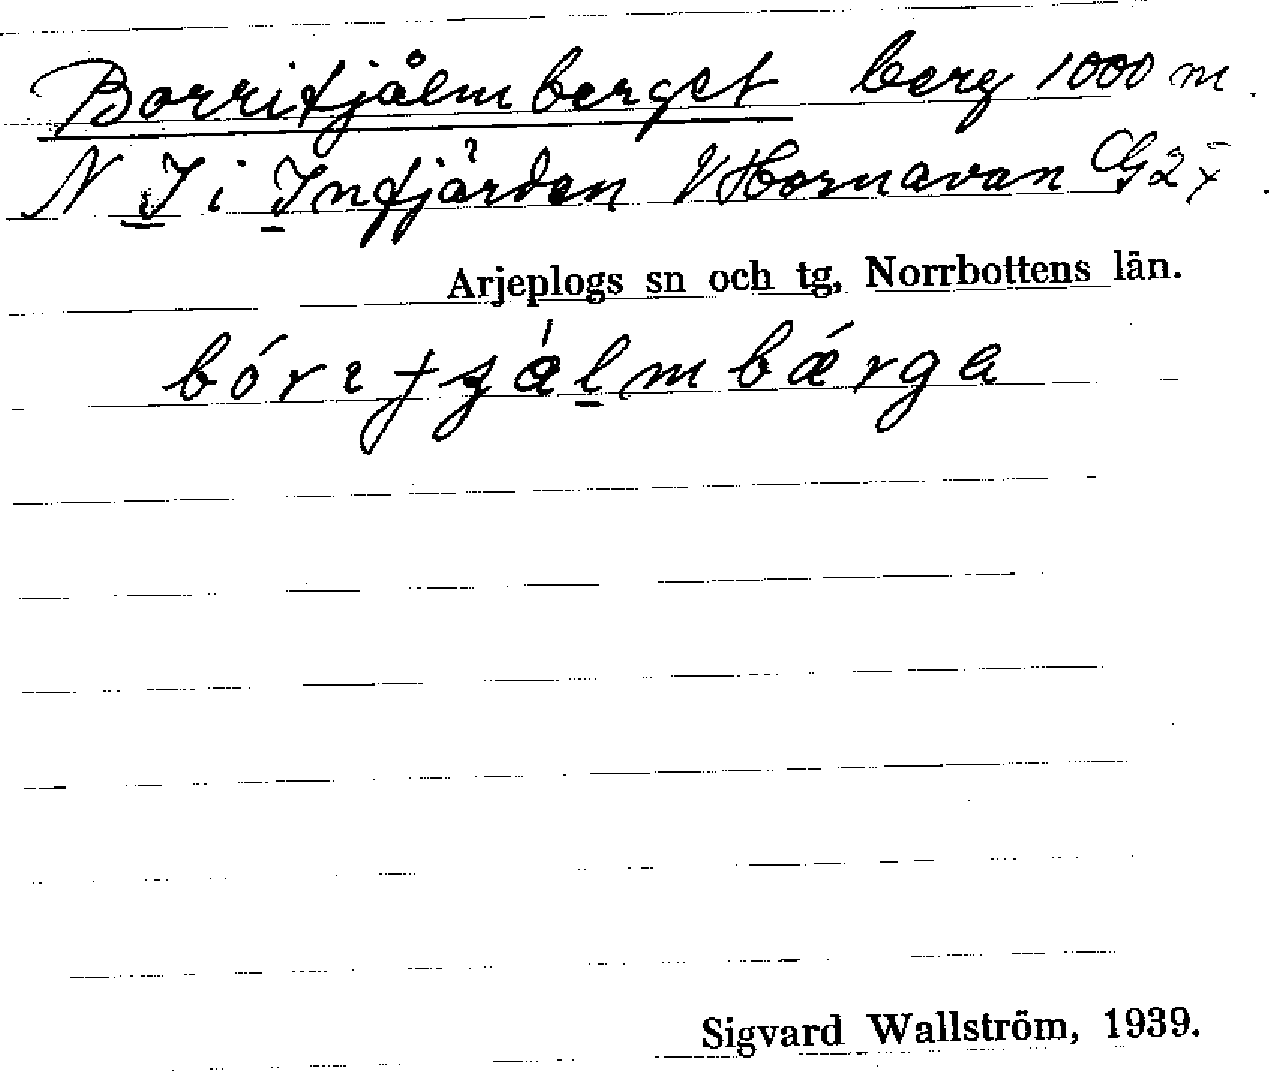 Borritjålmberget berg 1000 m.
N I i Infjärden V Hornavan G2x.
Arjeplogs sn och tg, Norrbottens län.
Sigvard Wallström, 1939.